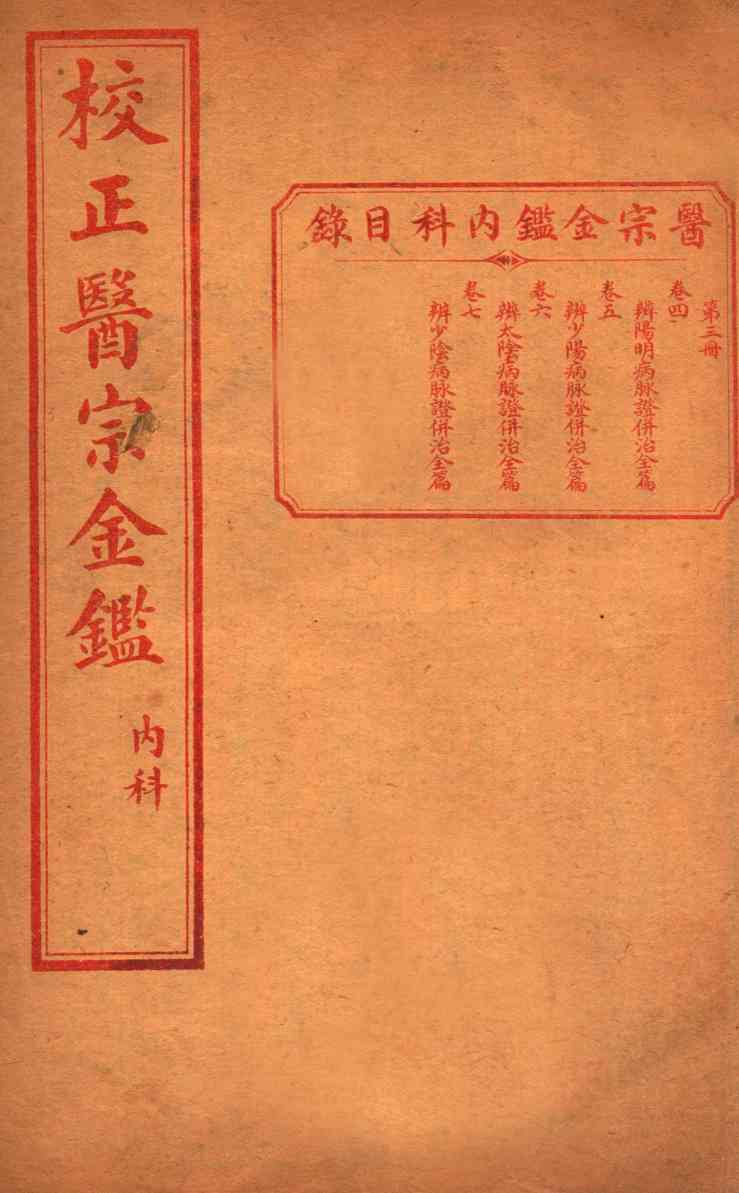 醫宗金鑑內科目錄
第三冊
卷四
辨陽明病脉證併治全篇
卷五
辨少陽病脉證併治全篇
卷六
辨太陰病脉證併治全篇
卷七
辨少陰病脉證併治全篇
校正醫宗金鑑
內科